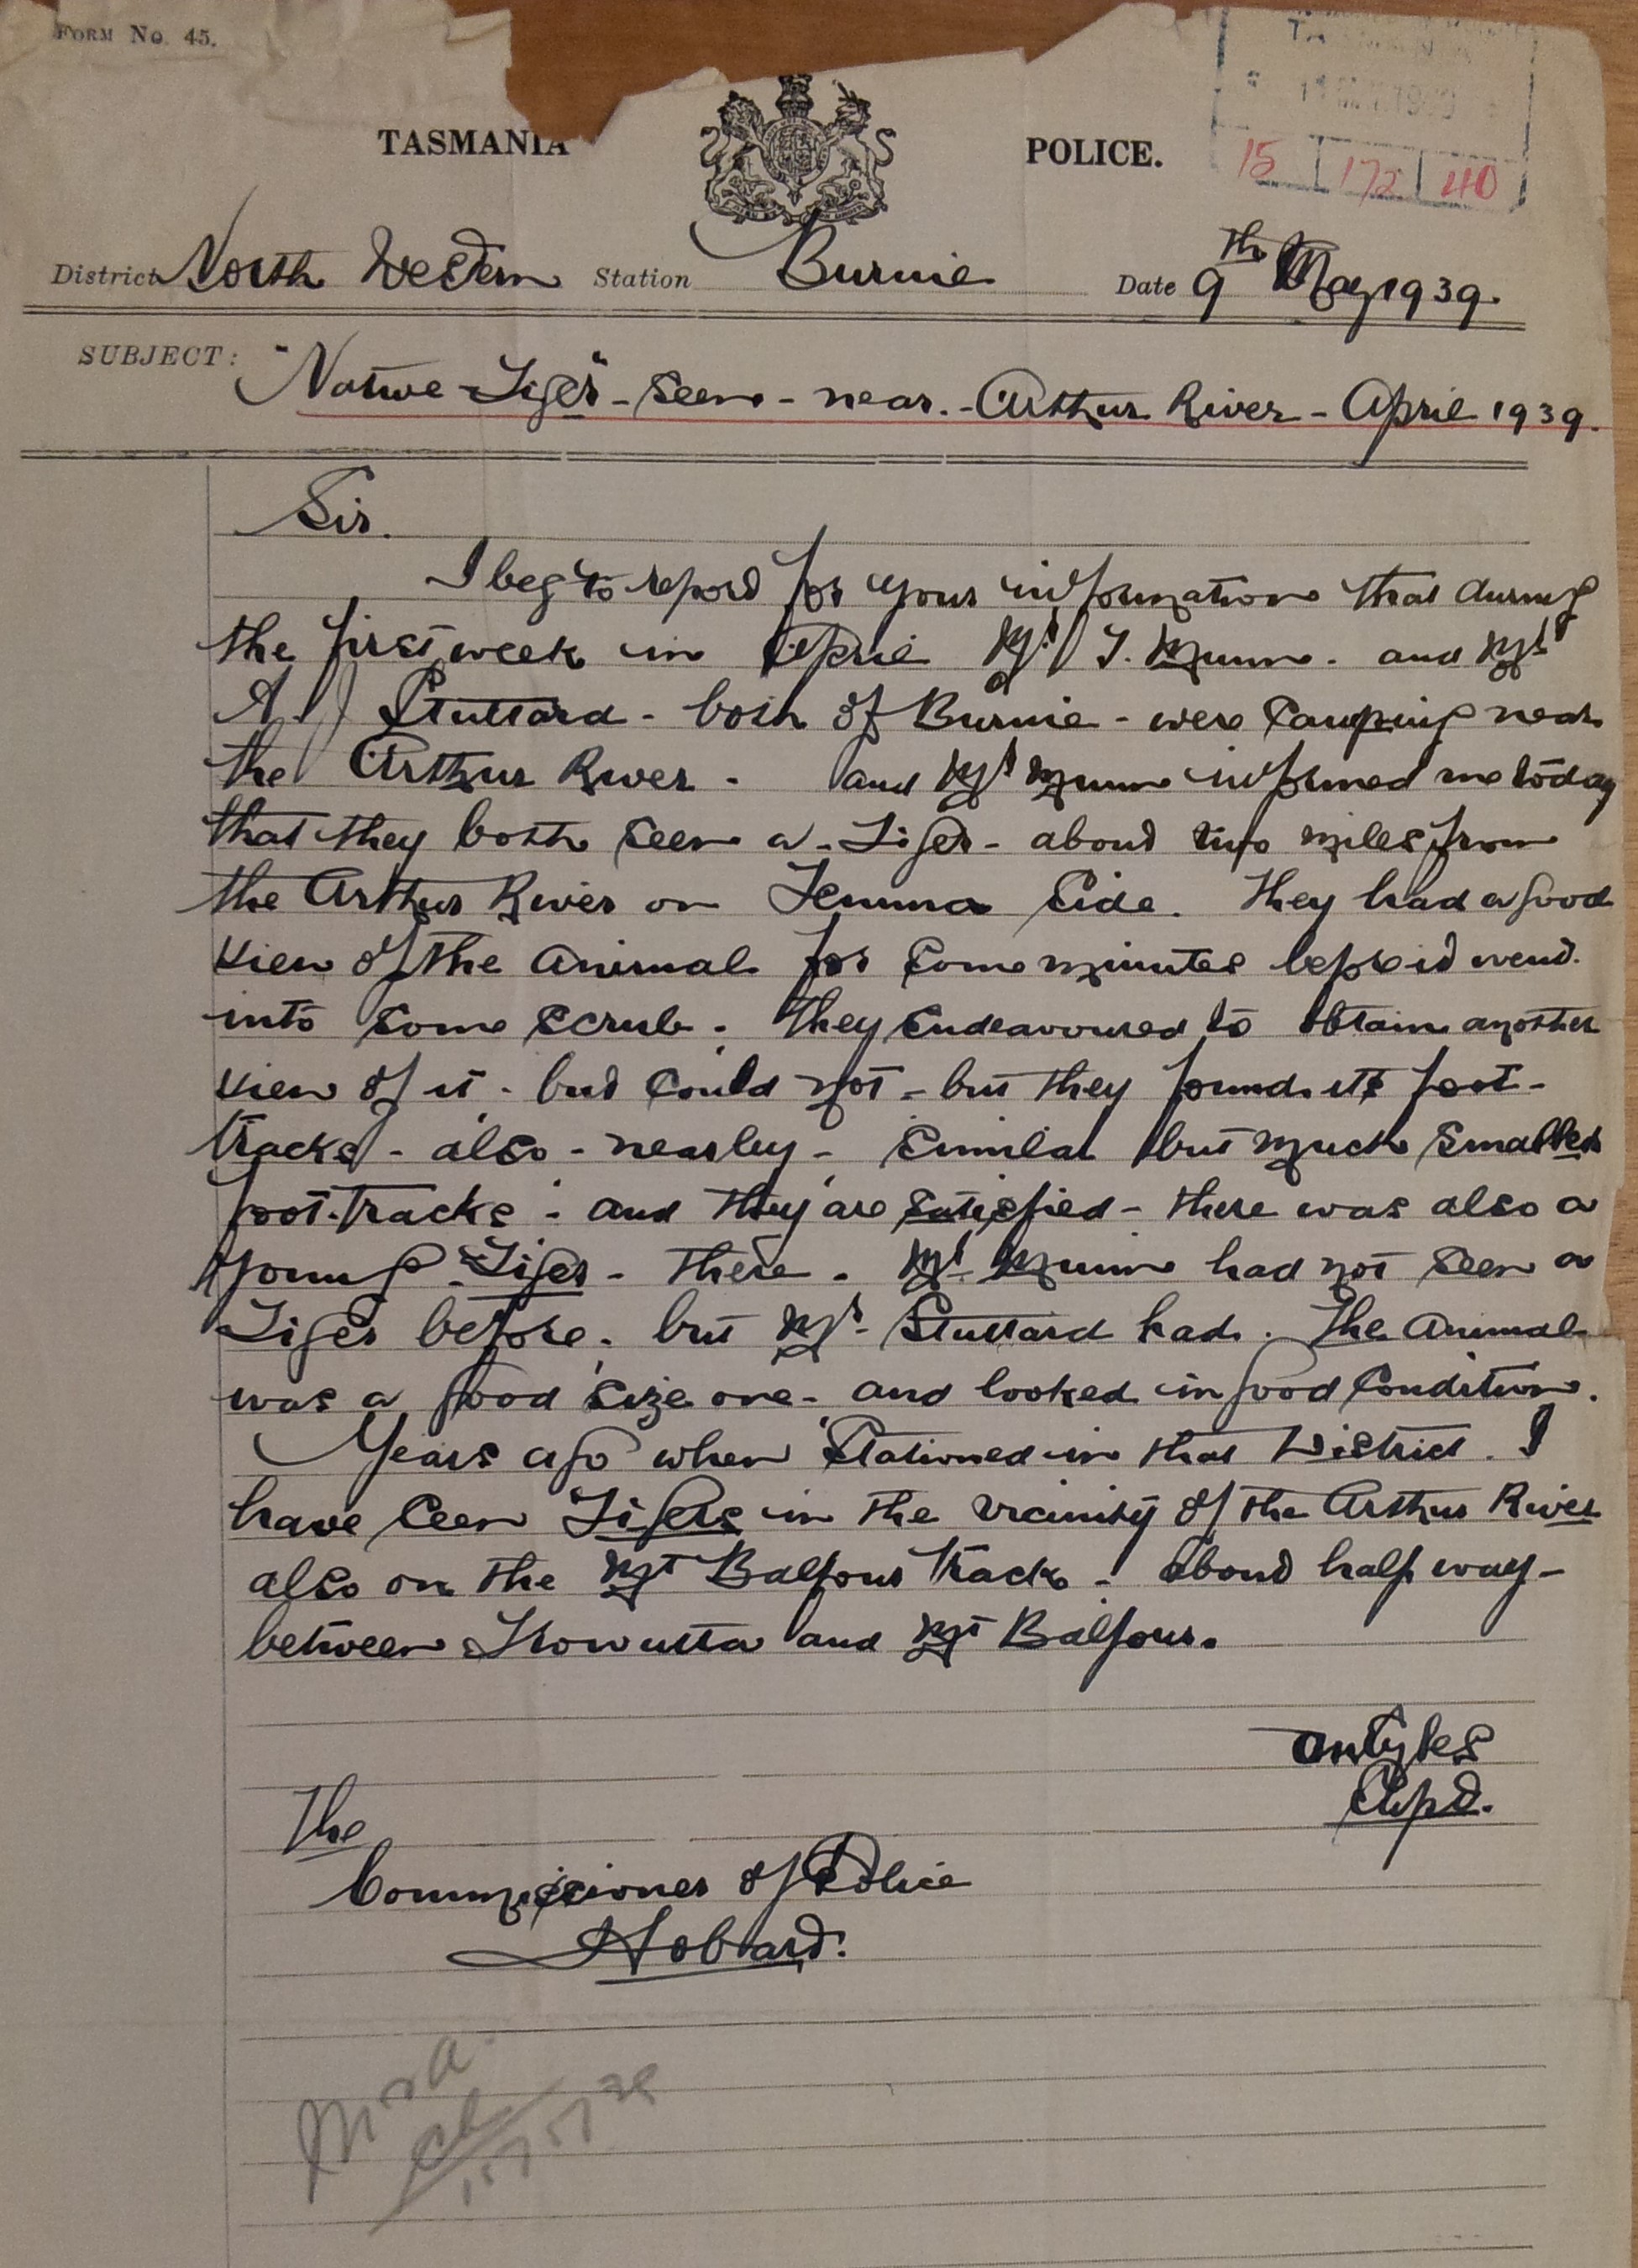 FORM No. 45.
TASMANIA POLICE.
15 172 40
District North Western Station Burnie Date 9th May 1939.
SUBJECT: "Native Tiger" - seen - near - Arthur River - April 1939.
Sir.
I beg to report for your information that during
the first week in April Mr T. Munn. and Mr
A. J Stuttard - both of Burnie - were Camping near
the Arthur River - and Mr Munn informed me today
that they both seen a - Tiger - about two miles from
the Arthur River on Temma Side. They had a good
view of the animal for some minutes before it went.
into some scrub. They Endeavoured to obtain another
view of it - but could not - but they found its foot-
tracks - also - nearby - similar but much smaller
foot-tracks - and they are satisfied - there was also a
young - Tiger - there. Mr Munn had not seen a
Tiger before, but Mr Stuttard had. The animal
was a good size one - and looked in good Condition.
Years ago when Stationed in that District. I
have seen Tigers in the vicinity of the Arthur River
also on the Mt Balfour track - about half way -
between Trowutta and Mt Balfour.
Supt.
The
Commissioner of Police
Hobart.